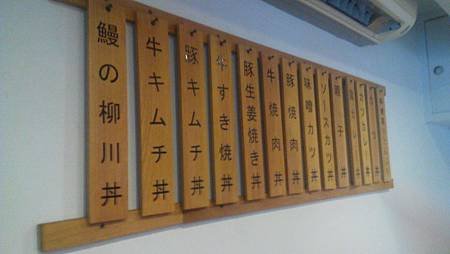 鰻の柳川丼
牛キムチ丼
豚キムチ丼
牛すき焼丼
豚生姜焼き丼
牛焼肉丼
豚焼肉丼
味噌カツ丼
ソースカツ丼
親子丼